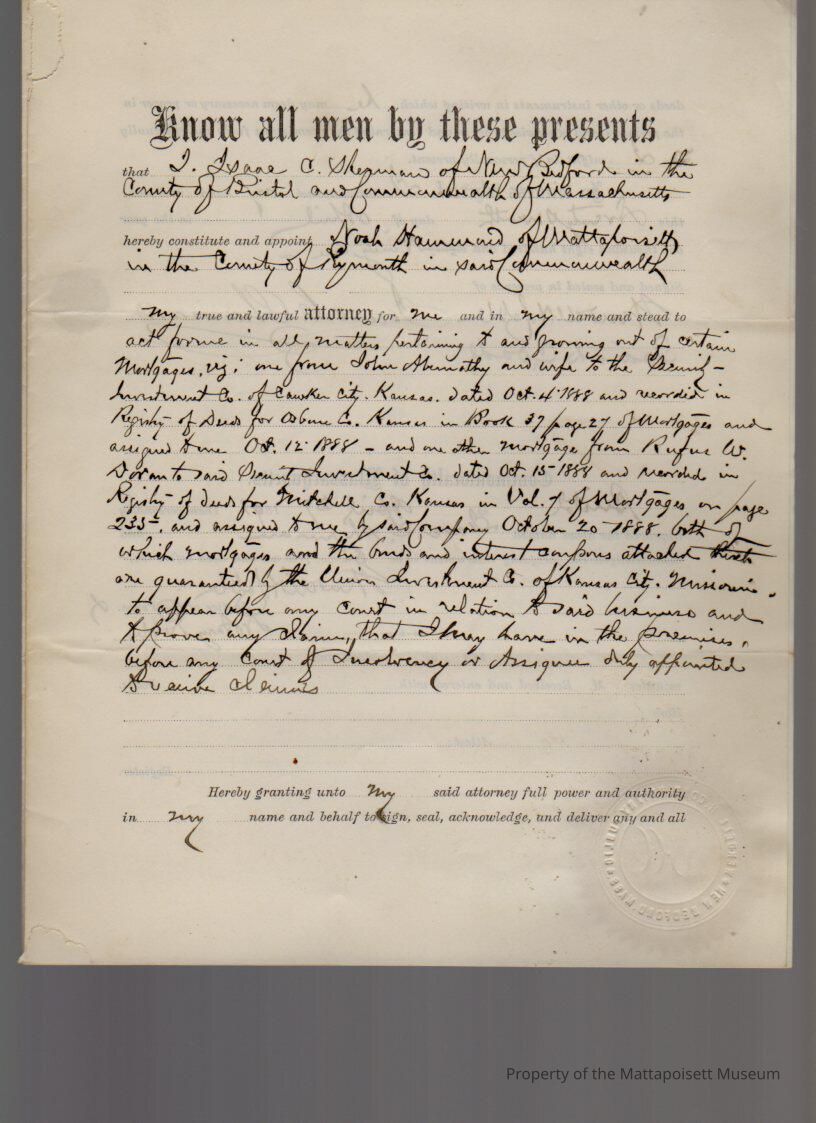 Know all men by these presents
that I. Isaac C. Sherman of New Bedford in the
County of Bristol and Commonwealth of Massachusetts
hereby constitute and appoint Noah Hammond of Mattapoisett
in the County of Plymouth in said Commonwealth
my true and lawful attorney for me and in my name and stead to
act for me in all matters pertaining to and growing out of certain
Mortgages, viz; one from John Abernathy and wife to the Security
Investment Co. of Cawker City. Kansas. dated Oct. 4 1888 and recorded in
Registry of Deeds for Osborne Co. Kansas in Book 37 page 27 of Mortgages and
assigned to me Oct. 12 1888 - and one other mortgage from Rufus W.
Doran to said Security Investment Co. dated Oct. 15 1888 and recorded in
Registry of deeds for Mitchell Co. Kansas in Vol. 7 of Mortgages on page
235, and assigned to me by said Company October 20 1888. both of
which mortgages and the bonds and interest coupons attached
are guaranteed by the Union Investment Co. of Kansas City. Missouri.
to appear before any Court in relation to said business and
to prove any claims, that I may have in the premises,
before any Court of Insolvency or Assignee duly appointed
to receive claims
Hereby granting unto my said attorney full power and authority
in my name and behalf to sign, seal, acknowledge, and deliver any and all
Property of the Mattapoisett Museum